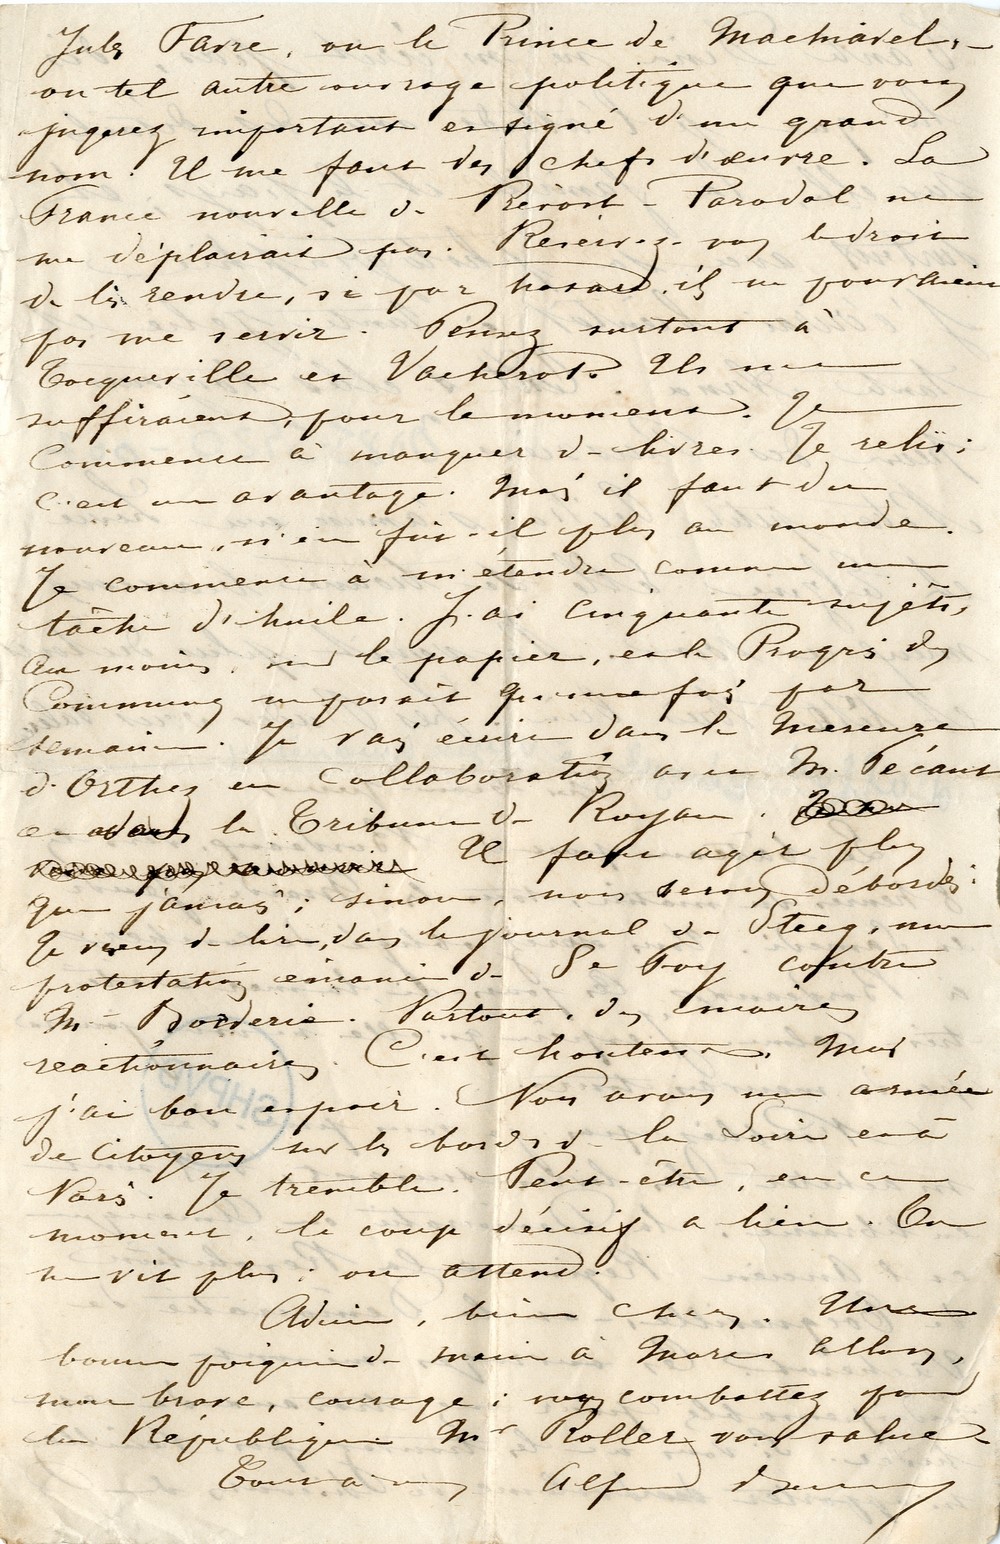 Jules Favre, ou le Prince de Machiavel,
ou tel autre ouvrage politique que vous
jugerez important et signé d'un grand
nom. Il me faut des chefs d'œuvre. La
France nouvelle de Prévost-Paradol ne
me déplairait pas. Réservez-vous le droit
de les rendre, si par hasard ils ne pouvaient
pas me servir. Pensez surtout à
Tocqueville et Vacherot. Ils me
suffiraient, pour le moment. Je
commence à manquer de livres. Je relis ;
c'est un avantage. Mais il faut du
nouveau, n'en fût-il plus au monde.
Je commence à m'étendre comme une
tâche d'huile. J'ai cinquante sujets,
au moins, sur le papier, et le Progrès des
Communes ne paraît qu'une fois par
semaine. Je vais écrire dans le Mercure
d'Orthez en collaboration avec M. Pécaut
et dans la Tribune de Royan.
Il faut agir plus
que jamais ; sinon, nous serons débordés.
Je viens de lire, dans le journal de Steeg, une
protestation émanée de Ste Foy contre
M. Borderie. Partout, des maires
réactionnaires. C'est honteux. Mais
j'ai bon espoir. Nous avons une armée
de citoyens sur les bords de la Loire et à
Paris. Je tremble. Peut-être, en ce
moment, le coup décisif a lieu. On
ne vit plus ; on attend.
Adieu, bien chers. Une
bonne poignée de main à Marc
mon brave, courage ; vous combattez pour
la République. Mr Roller vous salue.
Tout à vous Alfred
SHPVD